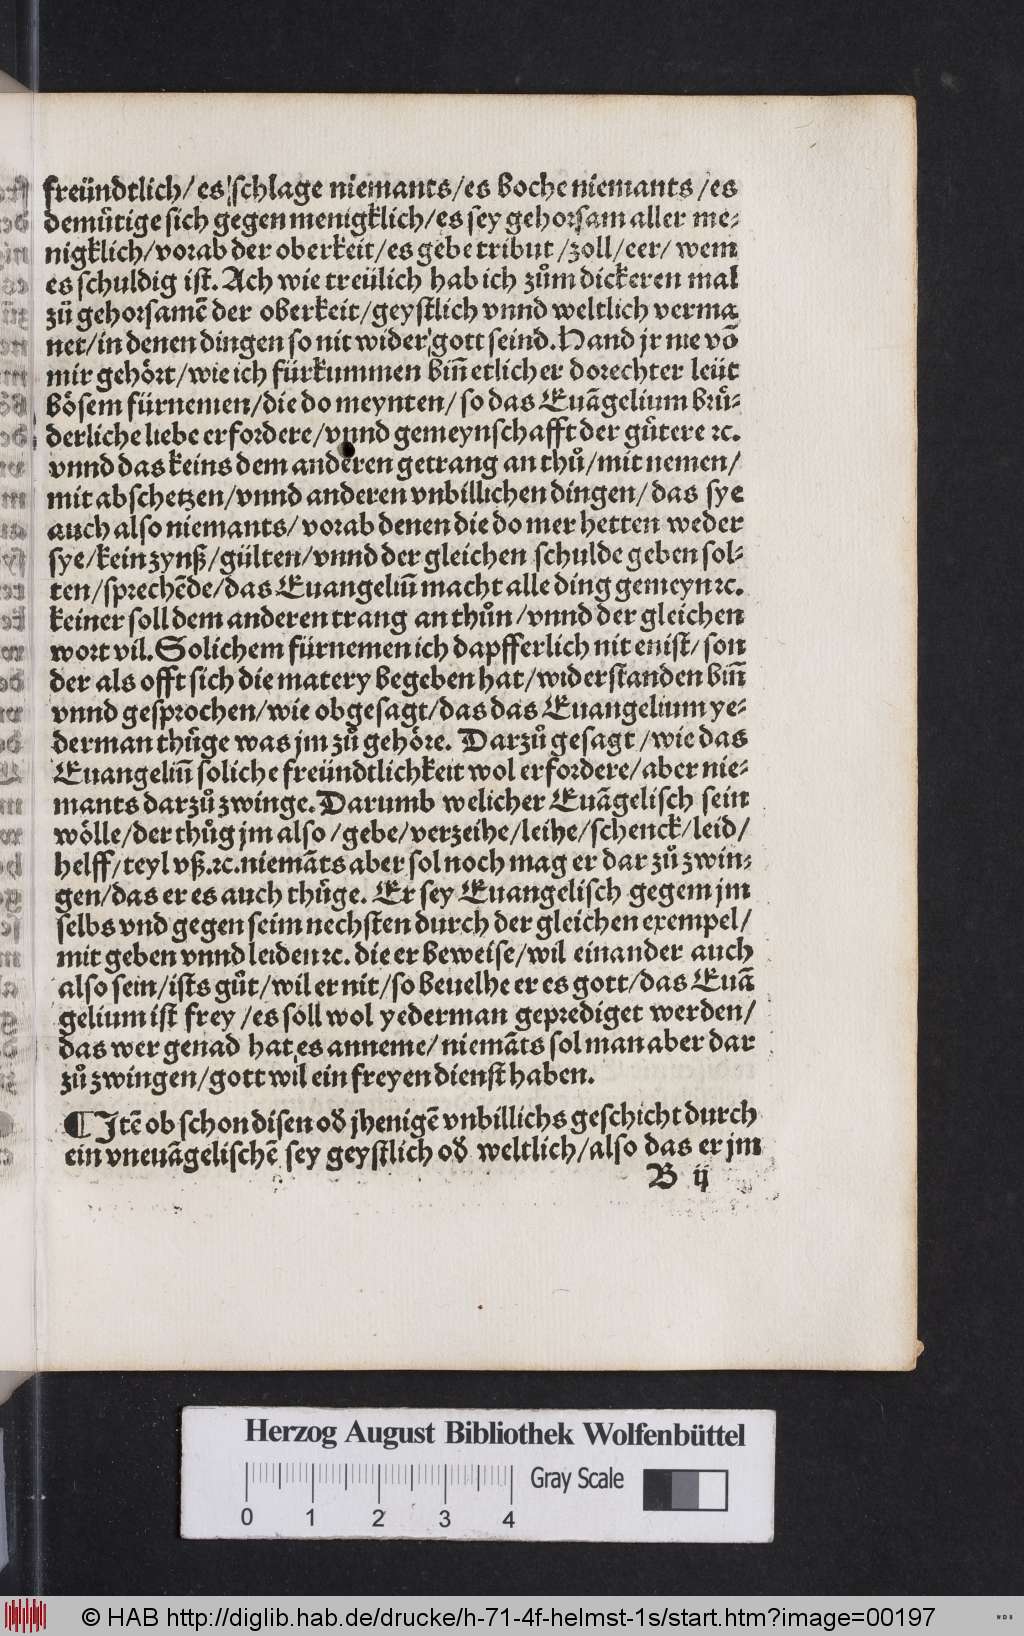 freündtlich/ es schlage niemants/es boche niemants /es
demütige sich gegen menigklich/es sey gehorsam aller me-
nigklich/vorab der oberkeit/es gebe tribut /zoll/eer/ wem
es schuldig ist. Ach wie treülich hab ich zům dickeren mal
zů gehorsamẽ der oberkeit/geystlich vnnd weltlich verma
net/in denen dingen so nit wider gott seind. Hand jr nie võ
mir gehört/wie ich fürkummen biñ etlicher dorechter leüt
bösem fürnemen/die do meynten/ so das Euãgelium brů-
derliche liebe erfordere/vnnd gemeynschafft der gůtere ꝛc.
vnnd das keins dem anderen getrang an thů/mit nemen/
mit abschetzen/vnnd anderen vnbillichen dingen/das sye
auch also niemants/ vorab denen die do mer hetten weder
sye/kein zynß/gülten/vnnd der gleichen schulde geben sol-
ten/sprechẽde/das Euangeliũ macht alle ding gemeyn ꝛc.
keiner soll dem anderen trang an thůn/vnnd der gleichen
wort vil. Solichem fürnemen ich dapfferlich nit enist/ son
der als offt sich die matery begeben hat/widerstanden biñ
vnnd gesprochen/wie obgesagt/das das Euangelium ye-
derman thüge was jm zů gehöre. Darzů gesagt /wie das
Euangeliũ soliche freündtlichkeit wol erfordere/aber nie-
mants darzů zwinge. Darumb welicher Euãgelisch sein
wölle/der thůg jm also /gebe/verzeihe/leihe/schenck/leid/
helff/teyl vß.ꝛc.niemãts aber sol noch mag er dar zů zwin-
gen/das er es auch thüge. Er sey Euangelisch gegem jm
selbs vnd gegen seim nechsten durch der gleichen exempel/
mit geben vnnd leiden ꝛc. die er beweise/wil einander auch
also sein/ists gůt/wil er nit/so beuelhe er es gott/das Euã
gelium ist frey /es soll wol yederman geprediget werden/
das wer genad hat es anneme/niemãts sol man aber dar
zů zwingen/gott wil ein freyen dienst haben.
¶Itẽ ob schon disen oď jhenigẽ vnbillichs geschicht durch
ein vneuãgelischẽ sey geystlich oď weltlich/also das er jm
B ij
Herzog August Bibliothek Wolfenbüttel
Gray Scale
0 1 2 3 4
© HAB http://diglib.hab.de/drucke/h-71-4f-helmst-1s/start.htm?image=00197